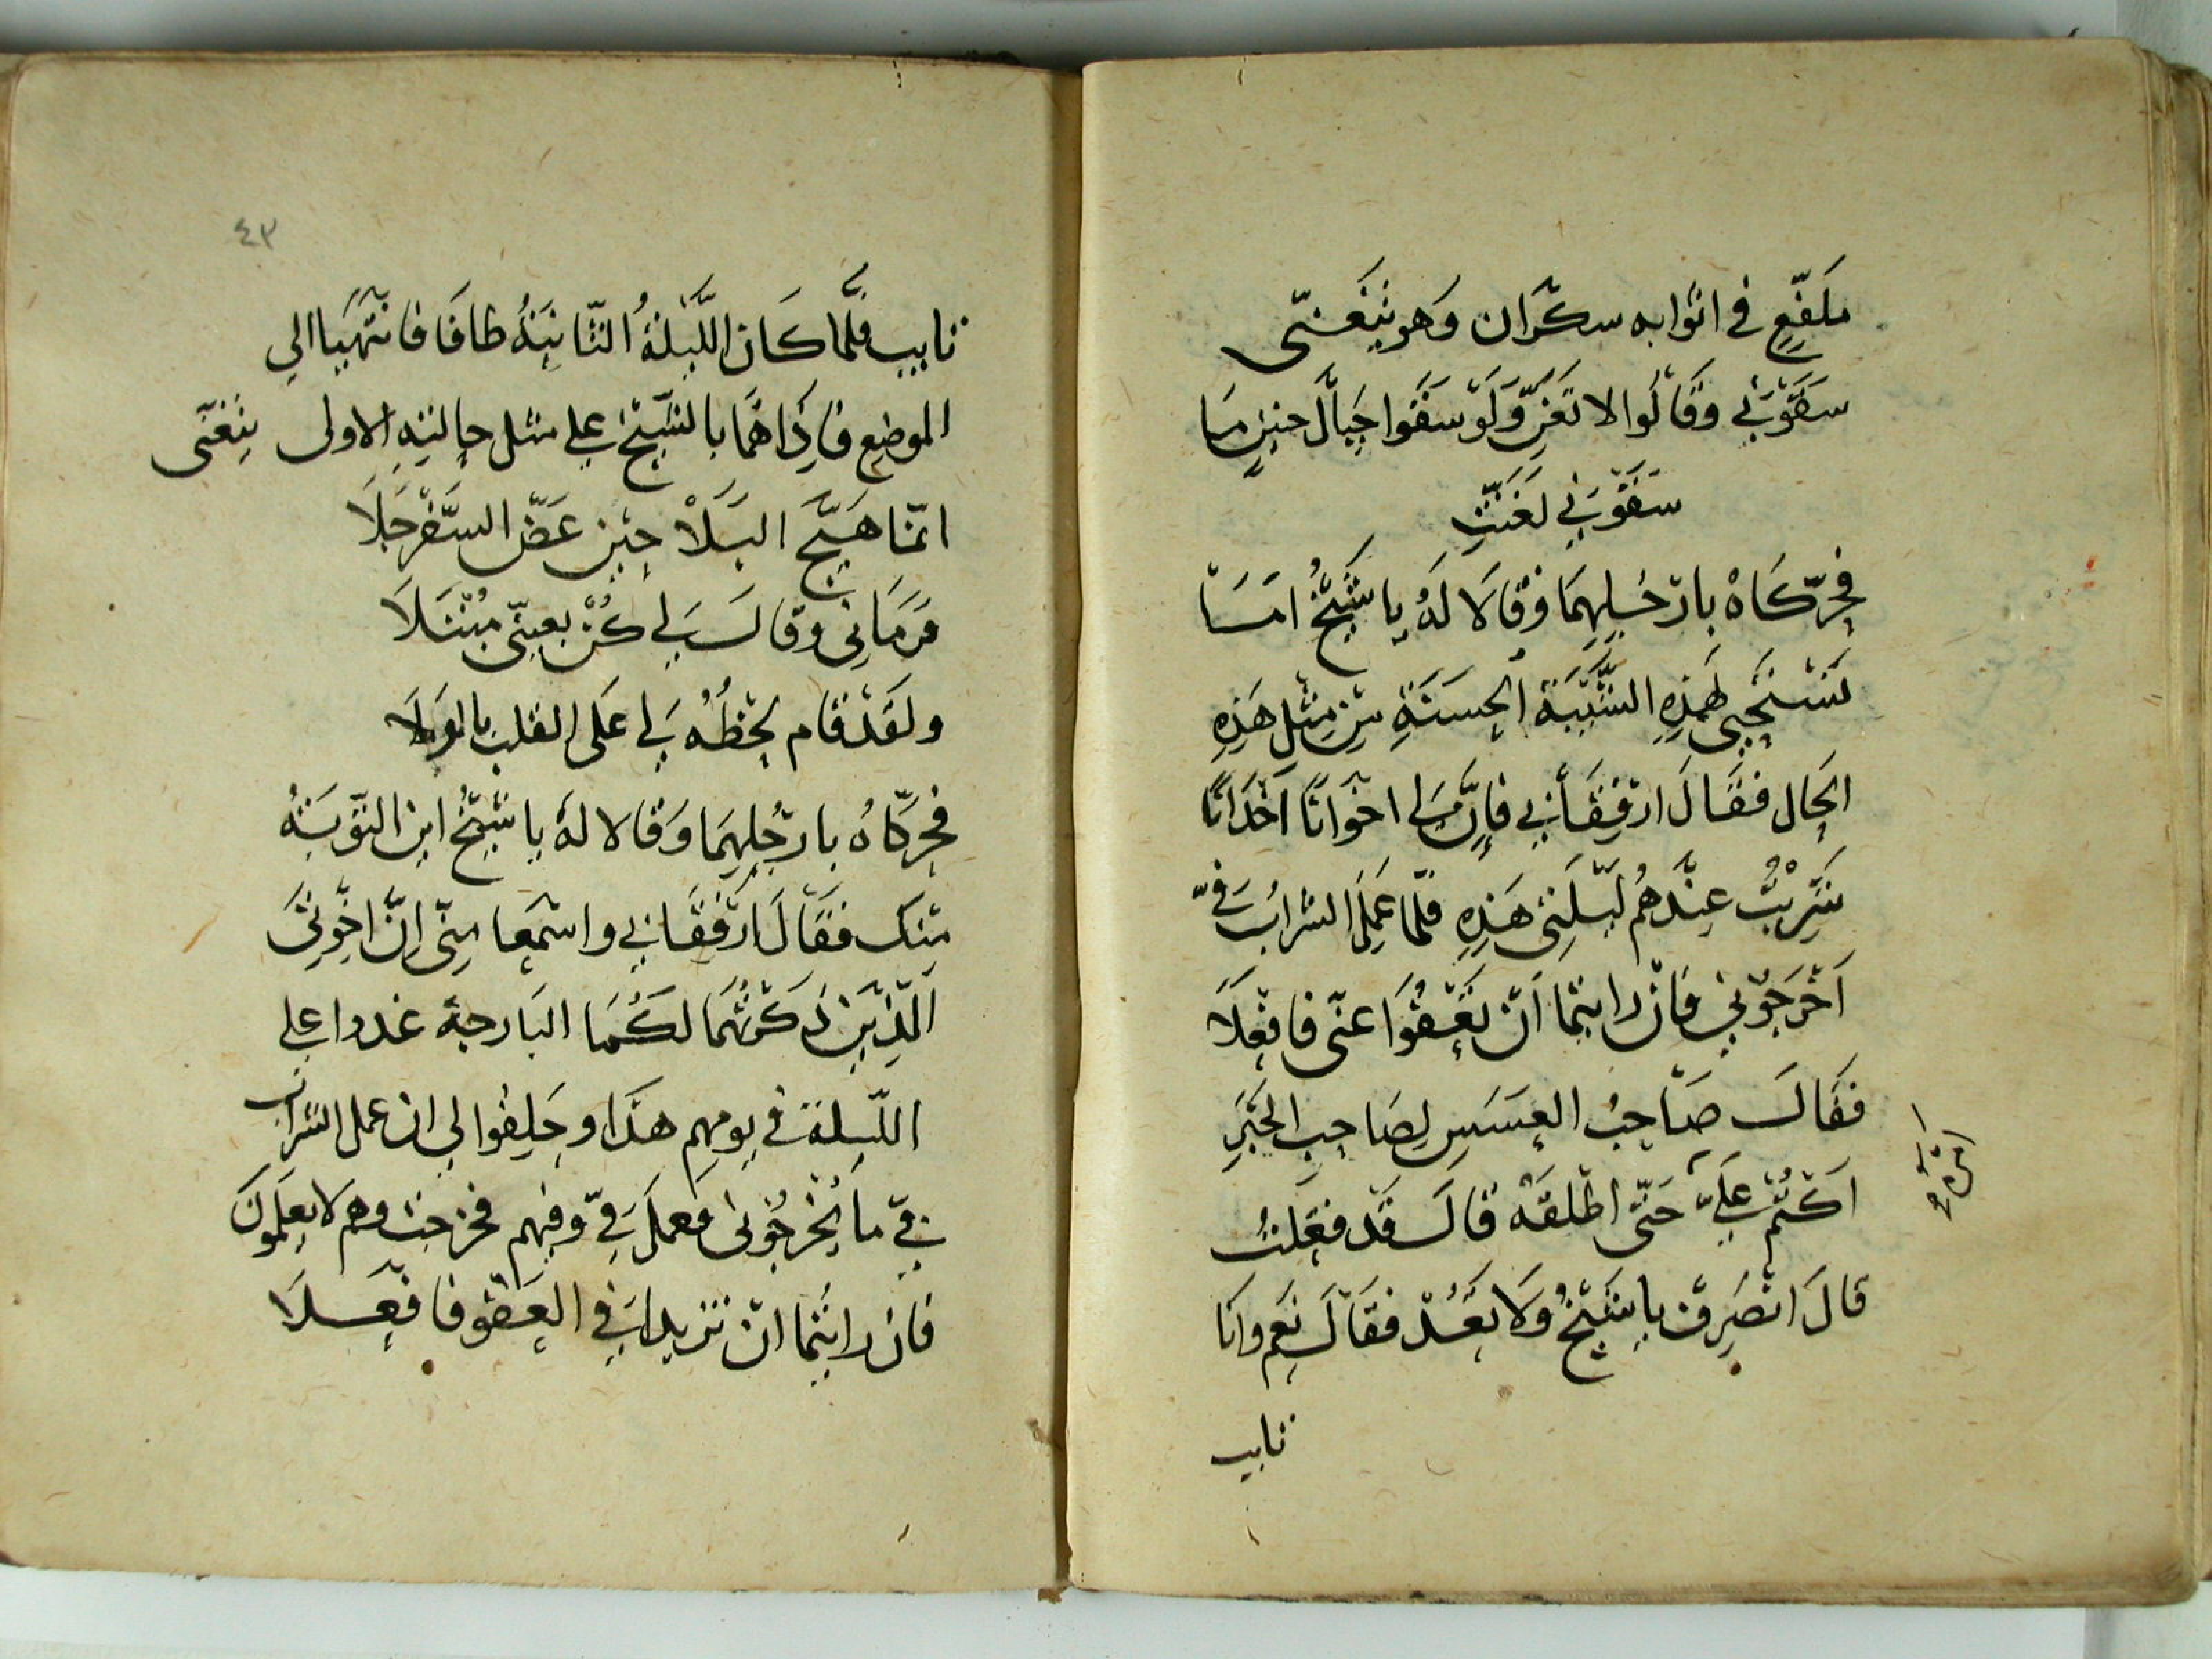 ملفّع في اثوابه سكران وهو يتغنّى
سقوني وقالوا لا تغنّ ولو سقوا جبال حنين ما
سقوني لغنّت
فحرّكاه بارجلهما وقالا له يا شيخ اما
تستحيي لهذه الشيبة الحسنة من مثل هذه
الحال فقال ارفقا بي فإنّ لي اخوانا احداثا
شربت عندهم ليلتي هذه فلمّا عمل الشراب فيّ
اخرجوني فان رايتما ان تعفوا عنّي فافعلا
فقال صاحب العسس لصاحب الخبر
اكتم عليّ حتّى اطلقه قال قد فعلت
قال انصرف يا شيخ ولا تعد فقال نعم وانا
تايب
٤٣
تايب فلمّا كان الليلة الثانية طافا فانتهيا الي
الموضع فاذا هما بالشيخ علي مثل حالته الاولى يتغنّى
انّما هيّج البلا حين عضّ السفرجلا
فرماني وقال لي كن بعيني مبتلا
ولقد قام لحظه لي على القلب بالولا
فحرّكاه بارجلهما وقالا له يا شيخ اين التوبة
منك فقال ارفقا بي واسمعا منّي انّ اخوتي
الذين ذكرتهما لكما البارحة غدوا علي
الليلة في يومهم هذا وحلفوا لي ان عمل الشراب
فيّ ما يخرجوني فعمل فيّ وفيهم فخرجت وهم لا يعلمون
فان رايتما ان تزيدا في العفو فافعلا